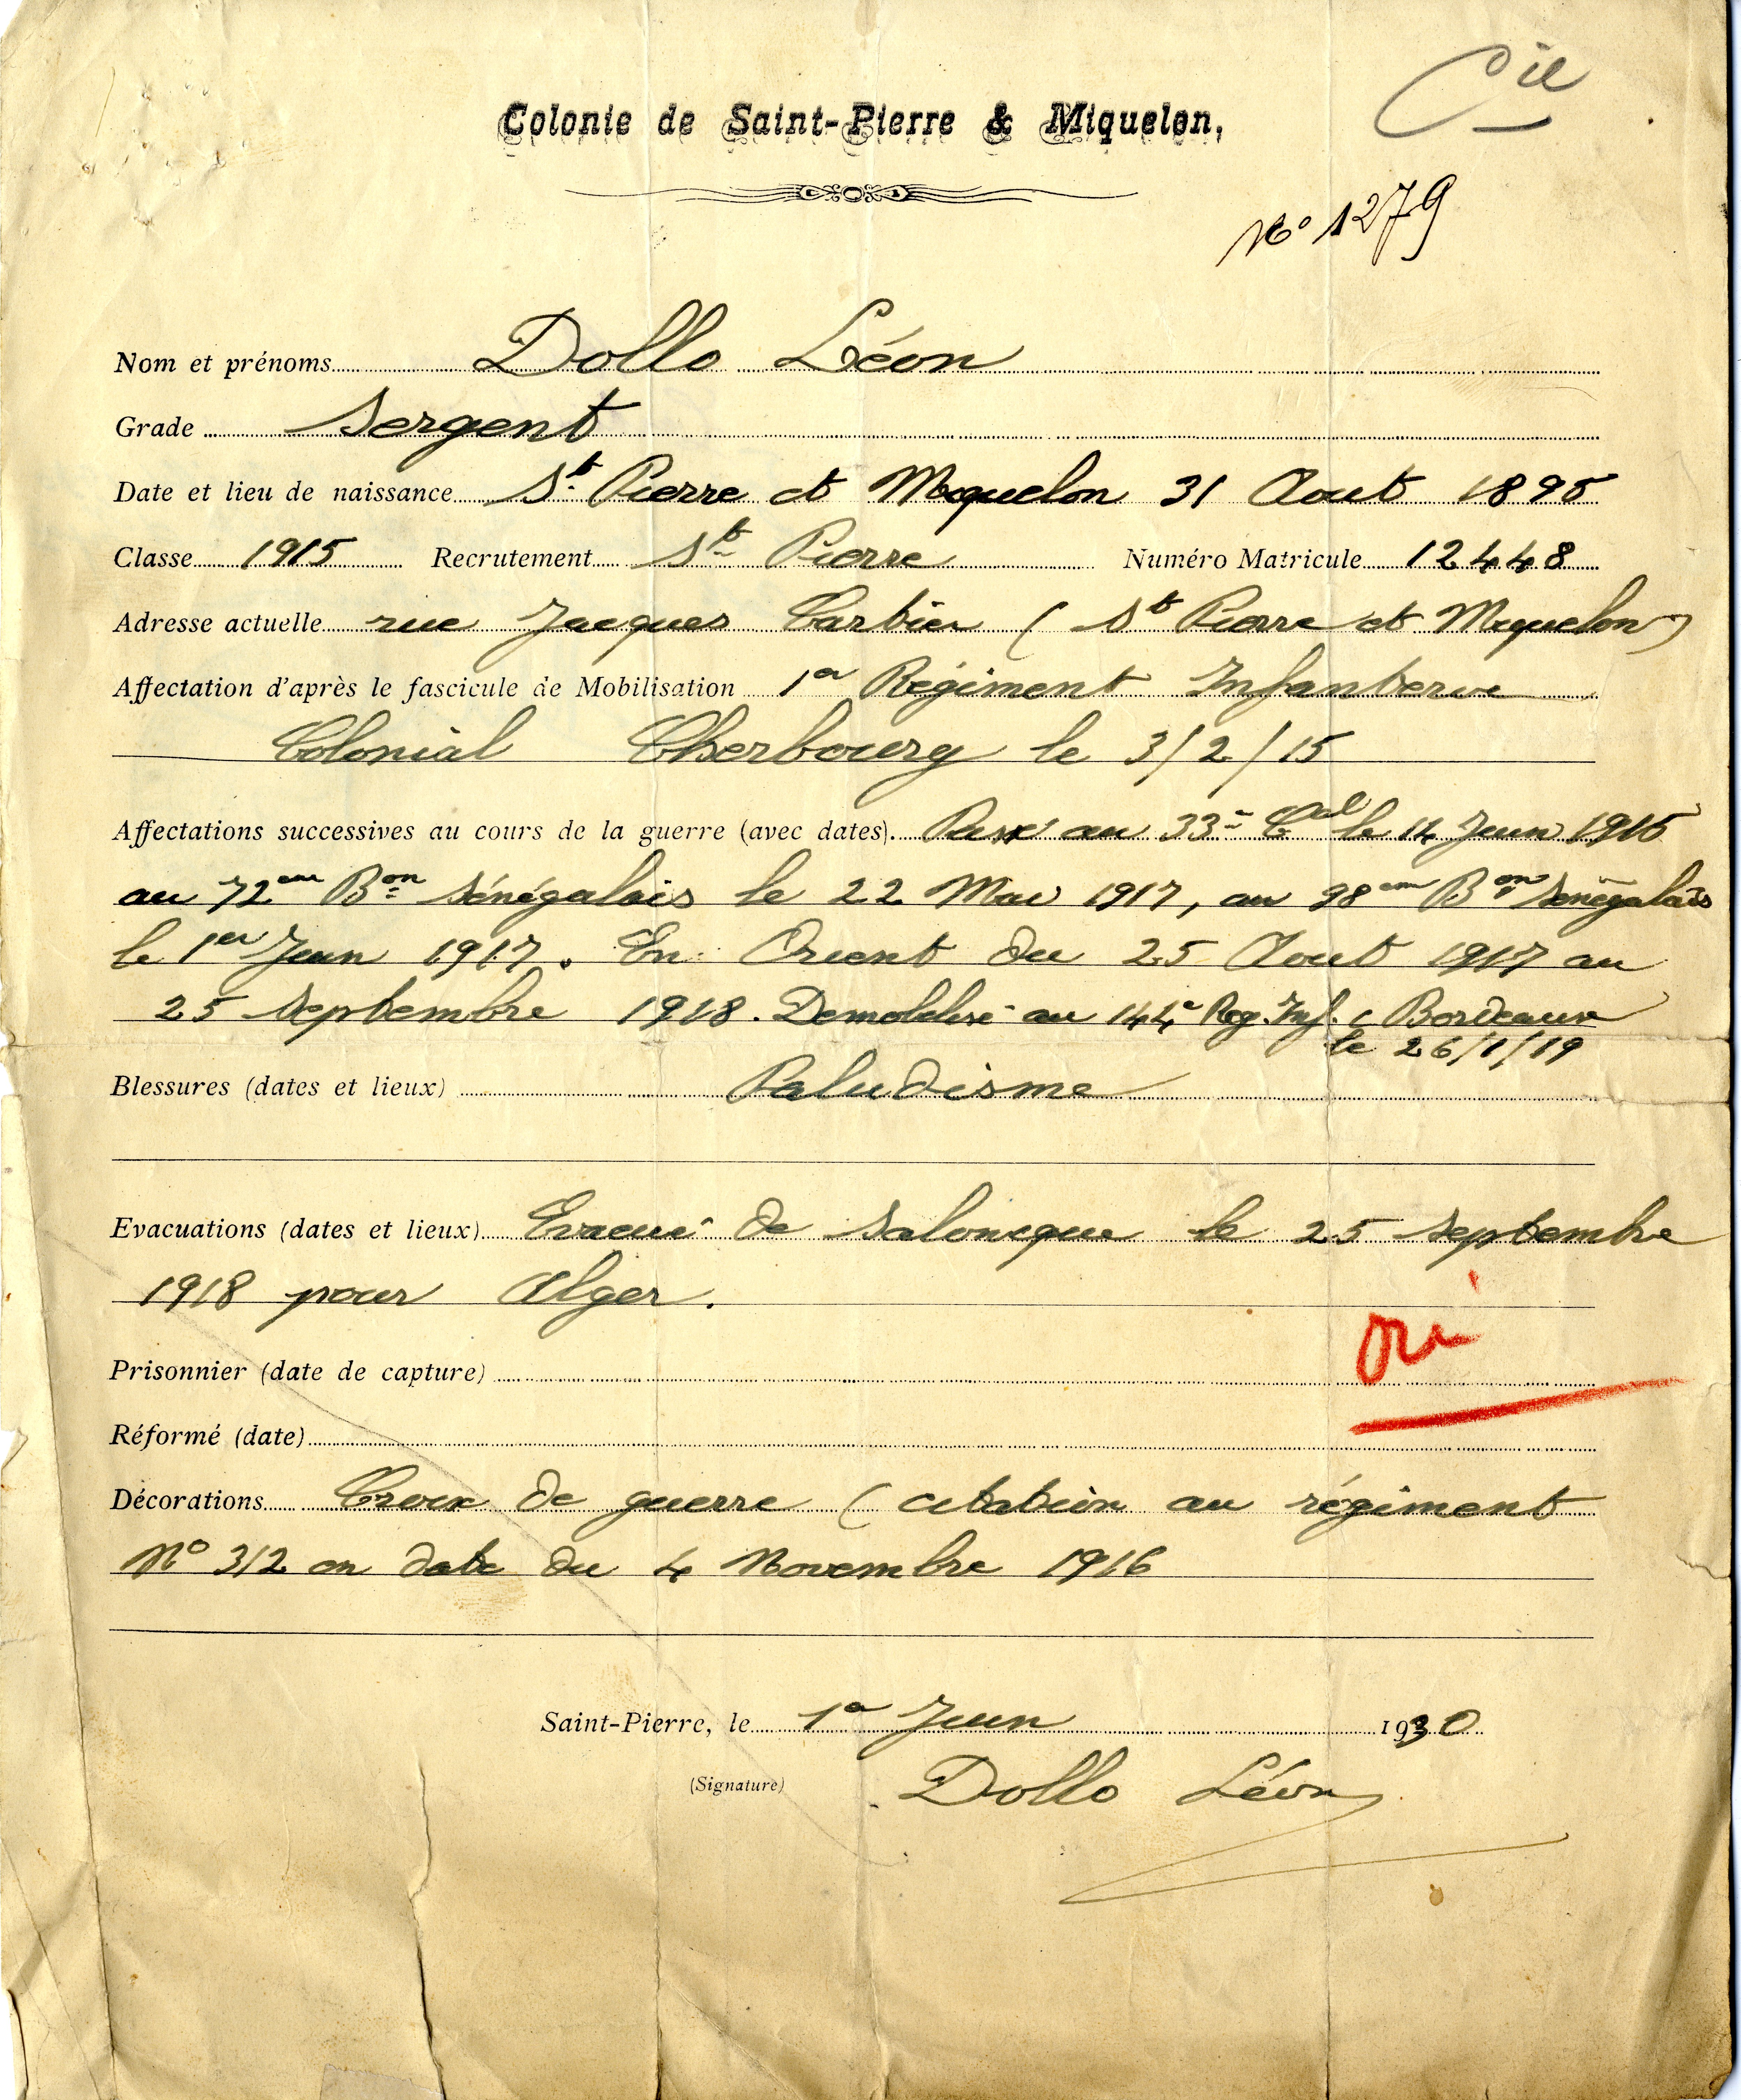 Cie
Colonie de Saint-Pierre & Miquelon,
No 1279
Nom et prénoms Dollo Léon
Grade Sergent
Date et lieu de naissance St Pierre et Miquelon 31 Aout 1895
Classe 1915 Recrutement St Pierre Numéro Matricule 12448
Adresse actuelle rue Jacques Cartier (St Pierre et Miquelon)
Affectation d'après le fascicule de Mobilisation 1er Régiment Infanterie
Colonial Cherbourg le 3/2/15
Affectations successives au cours de la guerre (avec dates). Passé au 33e Cial le 14 Juin 1915
au 72em Bon Sénégalais le 22 Mai 1917, au 98em Bon Sénégalais
le 1er Juin 1917. En Orient du 25 Aout 1917 au
25 Septembre 1918. Demobilisé au 144e Reg. Inf. Bordeaux
le 26/1/19
Blessures (dates et lieux) Paludisme
Evacuations (dates et lieux) Evacué de Salonique le 25 Septembre
1918 pour Alger.
oui
Prisonnier (date de capture)
Réformé (date)
Décorations Croix de guerre (citation au régiment
No 312 en date du 4 Novembre 1916
Saint-Pierre, le 1er Juin 1930
(Signature) Dollo Léon